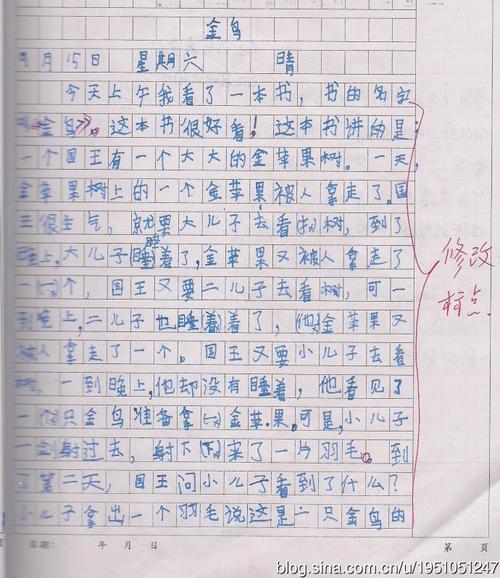 金鸟
9月15日 星期六 晴
今天上午我看了一本书，书的名字
叫《金鸟》。这本书很好看！这本书讲的是：
一个国王有一个大大的金苹果树。一天，
金苹果树上的一个金苹果被人拿走了。国
王很生气，就要大儿子去看树，到了
晚上，大儿子睡着了，金苹果又被人拿走了
一个，国王又要二儿子去看树，可一
到晚上，二儿子也睡着了，金苹果又
被人拿走了一个。国王又要小儿子去看
树，一到晚上，他却没有睡着，他看见了
一只金鸟准备拿金苹果。可是，小儿子
一剑射过去，射下来了一片羽毛。到
了第二天，国王问小儿子看到了什么？
小儿子拿出一个羽毛说这是一只金鸟的
修改
标点
日期： 年 月 日
第 页
blog.sina.com.cn/u/1951051247